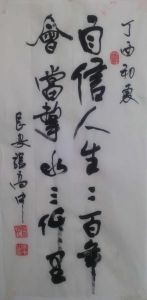 丁酉初夏
自信人生二百年
會當擊水三千里
長安